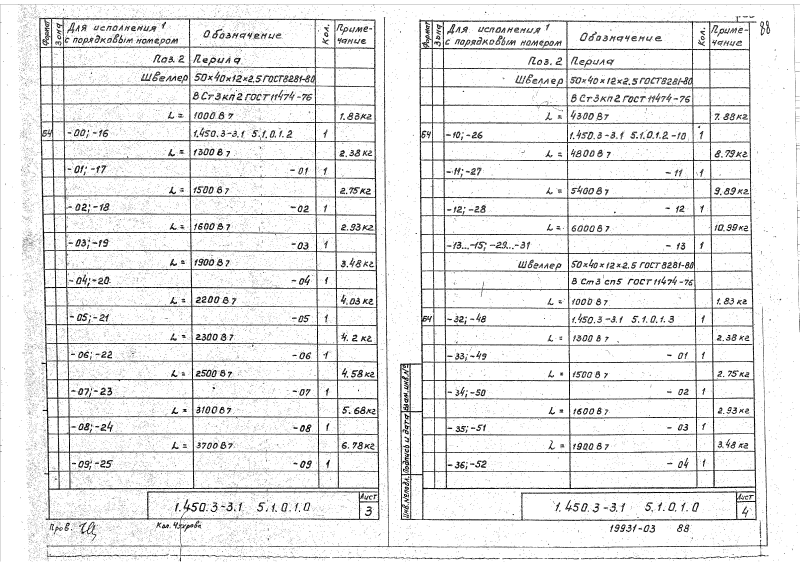 88
Формат
Зона
Для исполнения 1
с порядковым номером
Обозначение
Кол.
Приме-
чание
Поз. 2 Перила
Швеллер 50×40×12×2,5 ГОСТ 8281-80
В Ст3кп2 ГОСТ 11474-76
L = 1000 В 7 1.83кг
БЧ -00; -16 1.450.3-3.1 5.1.0.1.2 1
L = 1300 В 7 2.38кг
-01; -17 -01 1
L = 1500 В 7 2.75кг
-02; -18 -02 1
L = 1600 В 7 2.93кг
-03; -19 -03 1
L = 1900 В 7 3.48кг
-04; -20 -04 1
L = 2200 В 7 4.03кг
-05; -21 -05 1
L = 2300 В 7 4.2 кг
-06; -22 -06 1
L = 2500 В 7 4.58кг
-07; -23 -07 1
L = 3100 В 7 5.68кг
-08; -24 -08 1
L = 3700 В 7 6.78кг
-09; -25 -09 1
1.450.3-3.1 5.1.0.1.0
Лист
3
Пров.
Кол.
Формат
Зона
Для исполнения 1
с порядковым номером
Обозначение
Кол.
Приме-
чание
Поз. 2 Перила
Швеллер 50×40×12×2,5 ГОСТ 8281-80
В Ст3кп2 ГОСТ 11474-76
L = 4300 В 7 7.88кг
БЧ -10; -26 1.450.3-3.1 5.1.0.1.2 -10 1
L = 4800 В 7 8.79кг
-11; -27 -11 1
L = 5400 В 7 9.89кг
-12; -28 -12 1
L = 6000 В 7 10.99кг
-13...-15; -29...-31 -13 1
Швеллер 50×40×12×2.5 ГОСТ 8281-80
В Ст3 сп5 ГОСТ 11474-76
L = 1000 В 7 1.83кг
БЧ -32; -48 1.450.3-3.1 5.1.0.1.3 1
L = 1300 В 7 2.38кг
-33; -49 -01 1
L = 1500 В 7 2.75кг
-34; -50 -02 1
L = 1600 В 7 2.93кг
-35; -51 -03 1
L = 1900 В 7 3.48кг
-36; -52 -04 1
Инв.№подл. Подпись и дата Взам.инв.№
1.450.3-3.1 5.1.0.1.0
Лист
4
19931-03 88